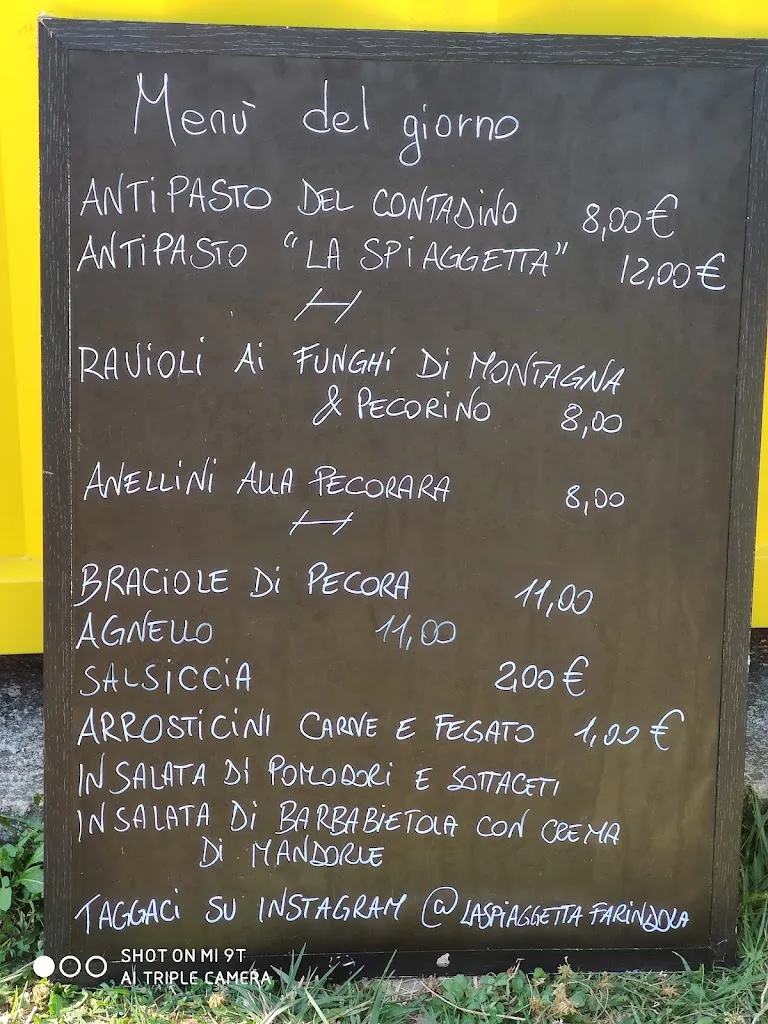 Menù del giorno
ANTIPASTO DEL CONTADINO 8,00€
ANTIPASTO "LA SPIAGGETTA" 12,00€
RAVIOLI AI FUNGHI DI MONTAGNA
& PECORINO 8,00
ANELLINI ALLA PECORARA 8,00
BRACIOLE DI PECORA 11,00
AGNELLO 11,00
SALSICCIA 2,00€
ARROSTICINI CARNE E FEGATO 1,00€
INSALATA DI POMODORI E SOTTACETI
INSALATA DI BARBABIETOLA CON CREMA
DI MANDORLE
TAGGACI SU INSTAGRAM @LASPIAGGETTAFARINDOLA
SHOT ON MI 9T
AI TRIPLE CAMERA